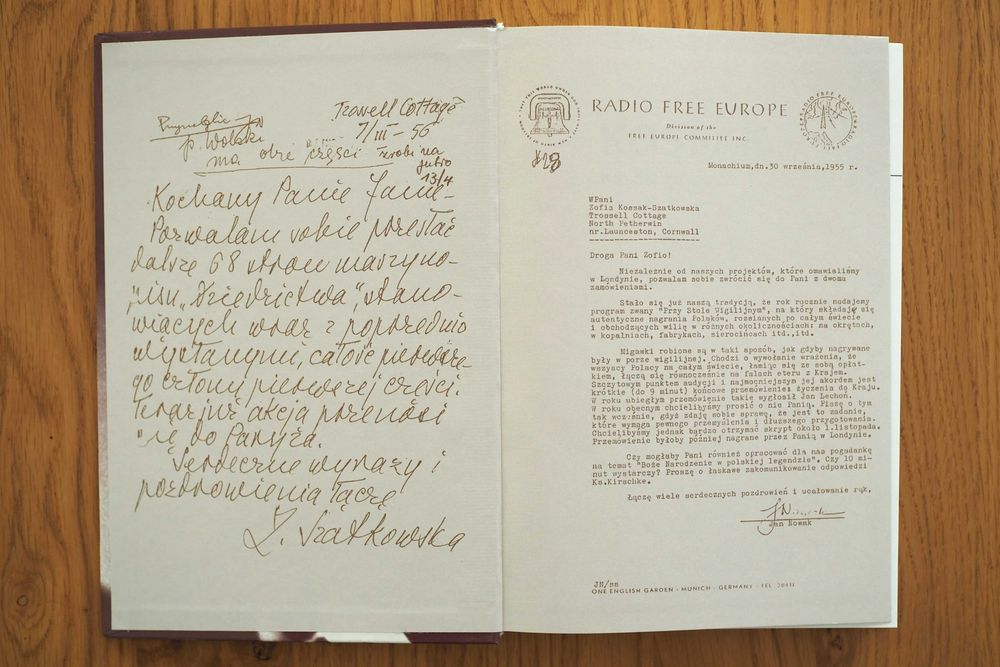 Trossell Cottage
7/III – 56
p. Wolski
ma obie części
zrobi na
jutro
13/4
Kochany Panie Janie –
Pozwalam sobie przesłać
dalsze 68 stron maszyno-
pisu „Dziedzictwa”, stano-
wiących wraz z poprzednio
wysłanymi, całość pierwsze-
go tomu pierwszej części.
Teraz już akcja przenosi
się do Paryża.
Serdeczne wyrazy i
pozdrowienia łączę
Z. Szatkowska
RADIO FREE EUROPE
Division of the
FREE EUROPE COMMITTEE INC.
Monachium,dn.30 września,1955 r.
WPani
Zofia Kossak-Szatkowska
Trossell Cottage
North Petherwin
nr.Launceston, Cornwall
Droga Pani Zofio!
Niezależnie od naszych projektów, które omawialiśmy
w Londynie, pozwalam sobie zwrócić się do Pani z dwoma
zamówieniami.
Stało się już naszą tradycją, że rok rocznie nadajemy
program zwany "Przy Stole Wigilijnym", na który składają się
autentyczne nagrania Polaków, rozsianych po całym świecie
i obchodzących wilię w różnych okolicznościach: na okrętach,
w kopalniach, fabrykach, sierocińcach itd.,itd.
Migawki robione są w taki sposób, jak gdyby nagrywane
były w porze wigilijnej. Chodzi o wywołanie wrażenia, że
wszyscy Polacy na całym świecie, łamiąc się ze sobą opłat-
kiem, łączą się równocześnie na falach eteru z Krajem.
Szczytowym punktem audycji i najmocniejszym jej akordem jest
krótkie (do 9 minut) końcowe przemówienie: życzenia do Kraju.
W roku ubiegłym przemówienie takie wygłosił Jan Lechoń.
W roku obecnym chcielibyśmy prosić o nie Panią. Piszę o tym
tak wcześnie, gdyż zdaję sobie sprawę, że jest to zadanie,
które wymaga pewnego przemyślenia i dłuższego przygotowania.
Chcielibyśmy jednak bardzo otrzymać skrypt około 1.listopada.
Przemówienie byłoby później nagrane przez Panią w Londynie.
Czy mogłaby Pani również opracować dla nas pogadankę
na temat "Boże Narodzenie w polskiej legendzie". Czy 10 mi-
nut wystarczy? Proszę o łaskawe zakomunikowanie odpowiedzi
Ks.Kirschke.
Łączę wiele serdecznych pozdrowień i ucałowanie rąk,
Jan Nowak
ONE ENGLISH GARDEN · MUNICH · GERMANY · TEL.